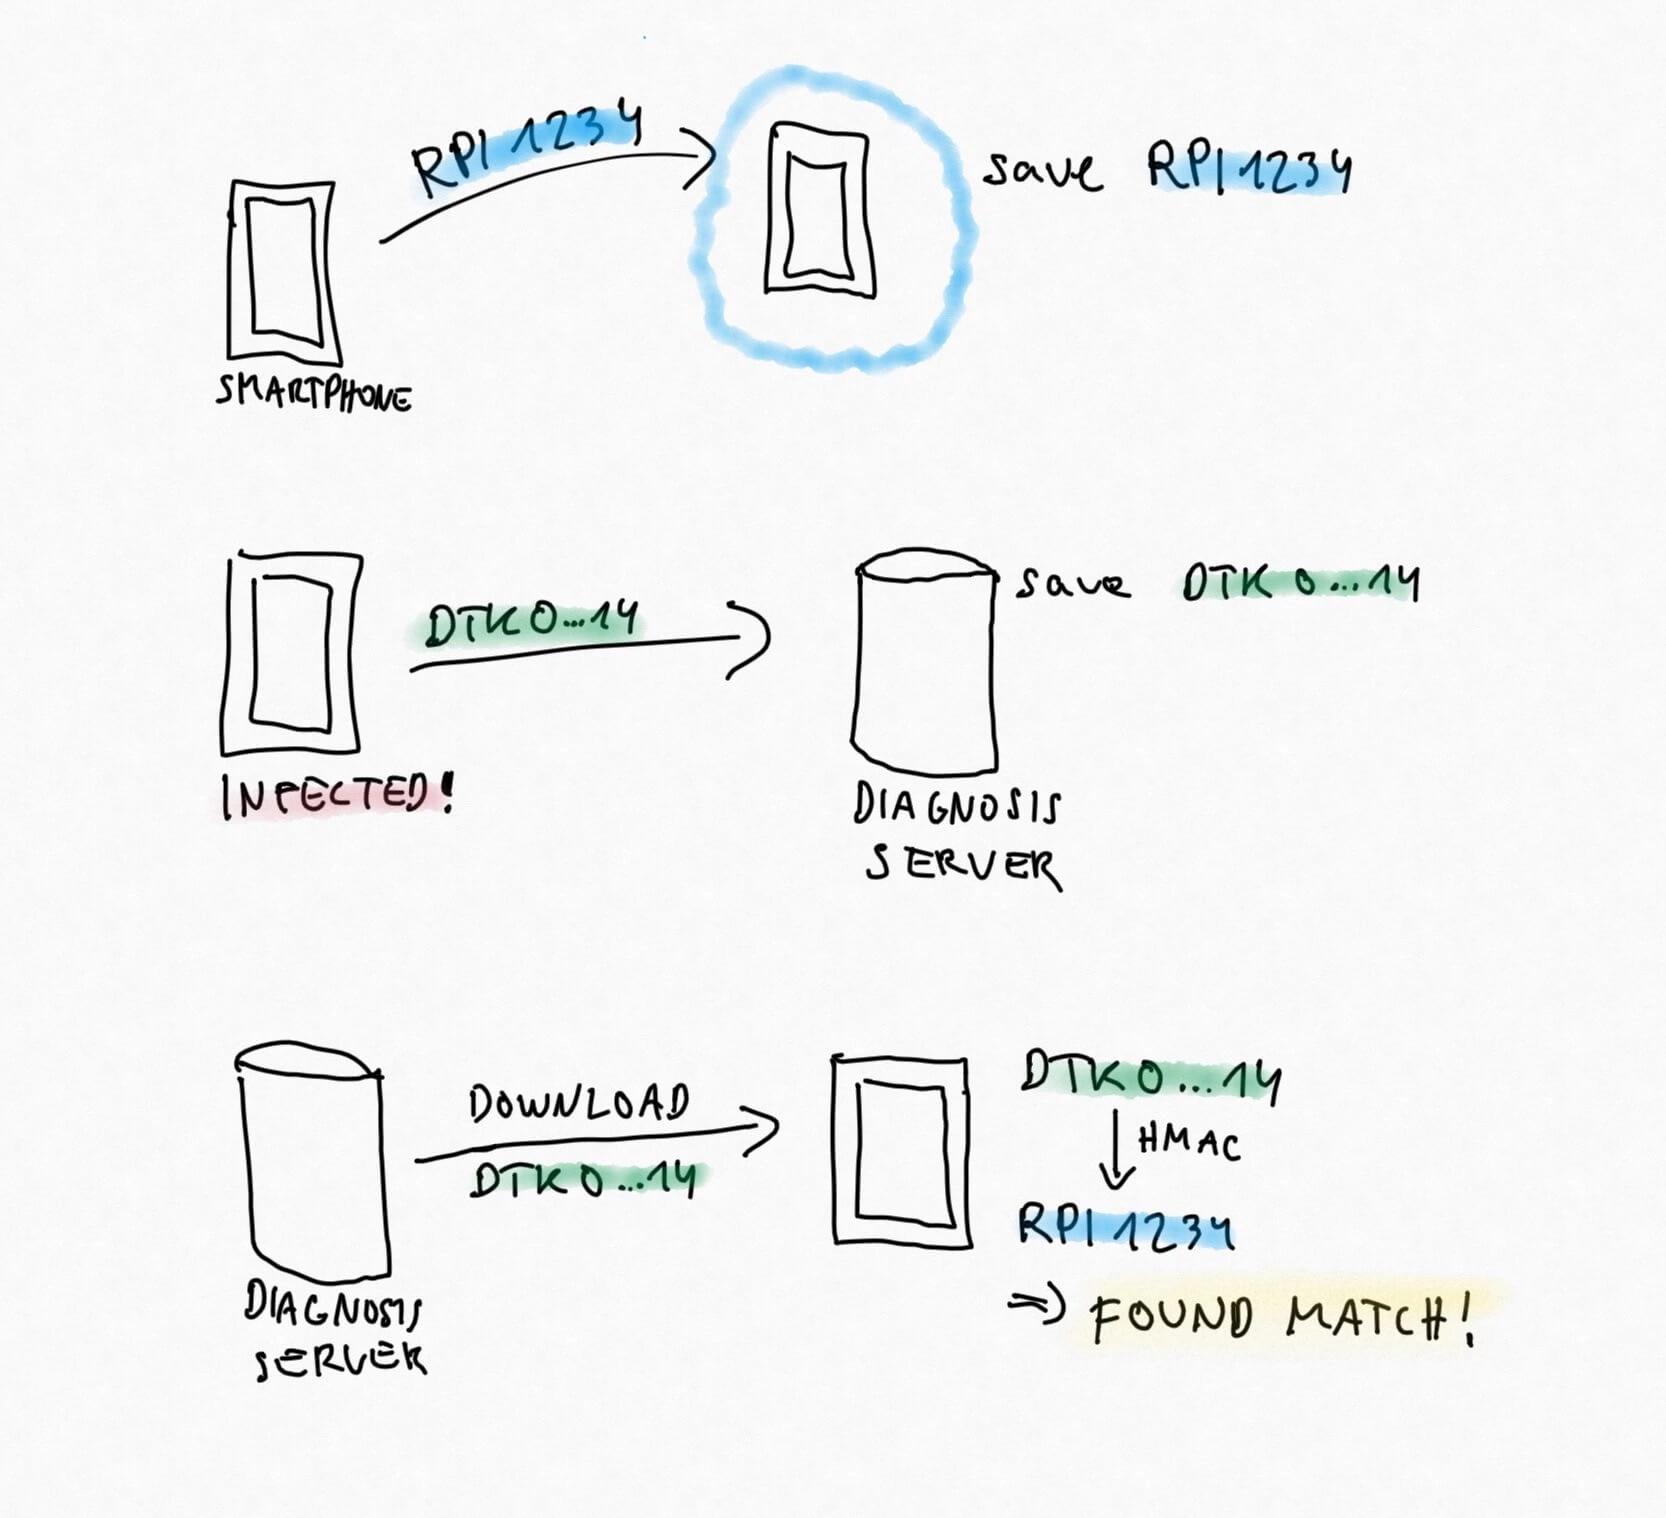 RPI 1234
save RPI 1234
SMARTPHONE
DTK 0...14
save DTK 0...14
INFECTED!
DIAGNOSIS
SERVER
DOWNLOAD
DTK 0...14
DTK 0...14
HMAC
RPI 1234
=> FOUND MATCH!
DIAGNOSIS
SERVER